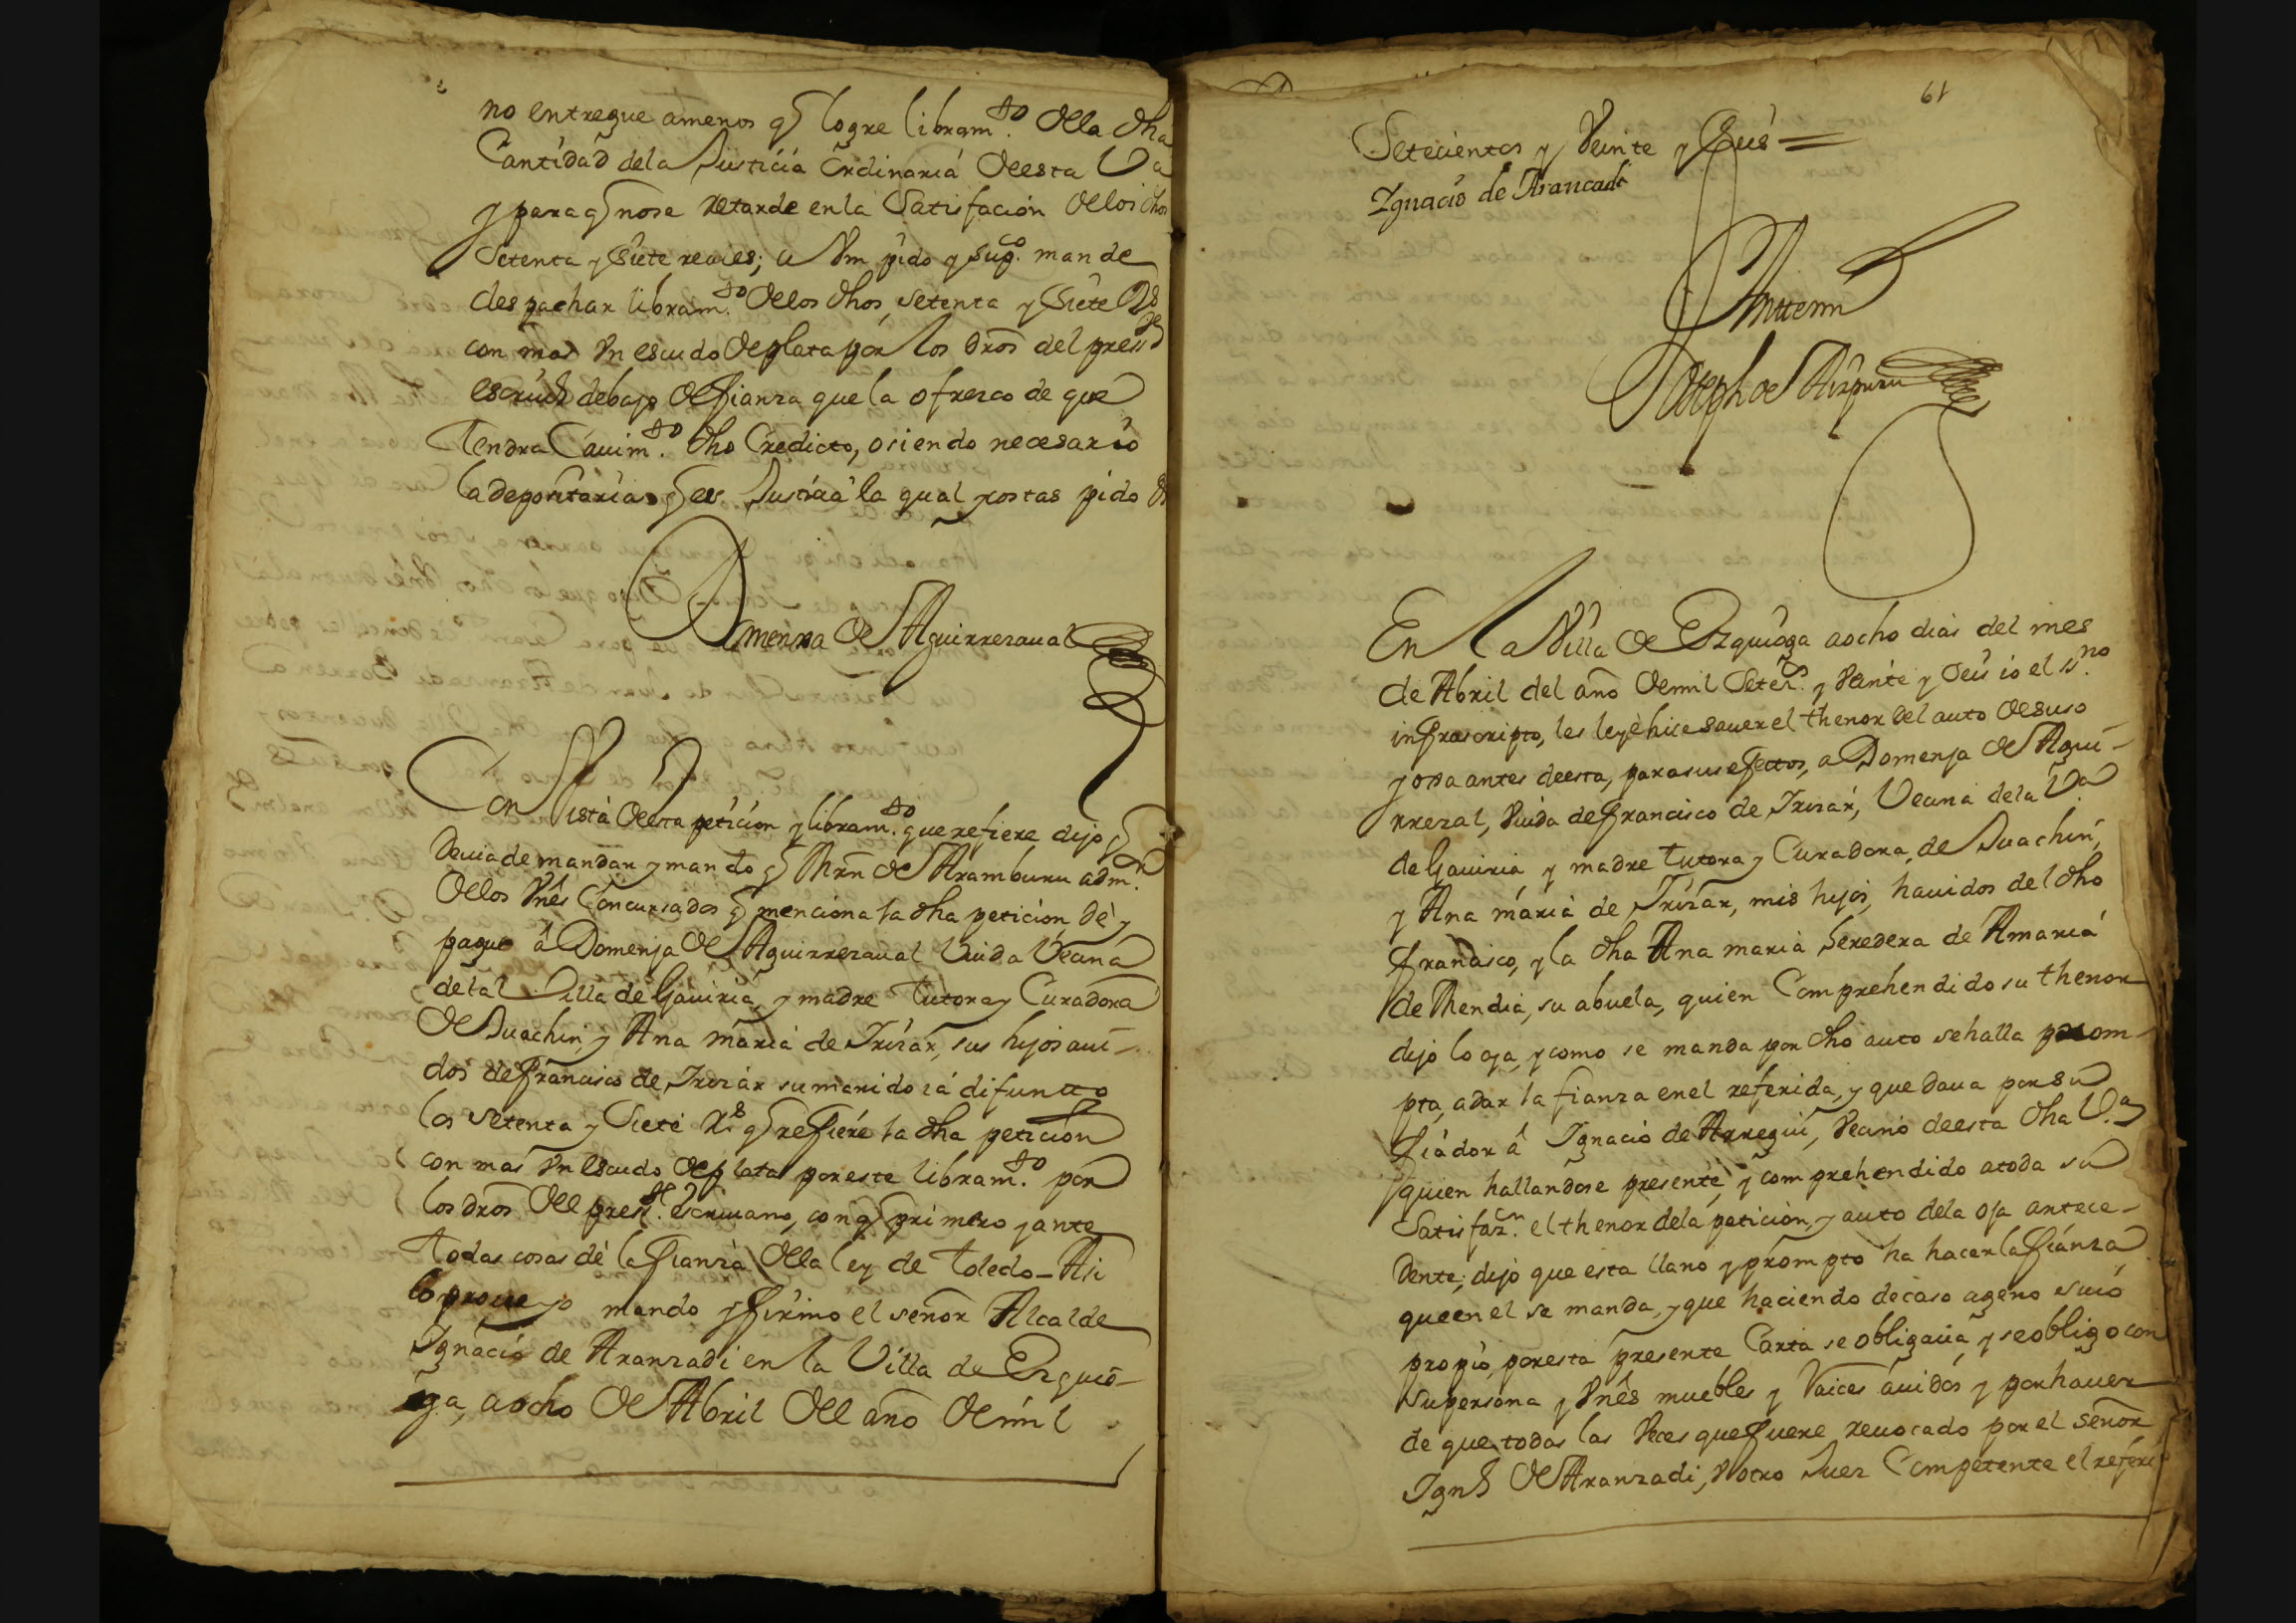 no entregue amenos q̃ logre libram.to Della dha
Cantidad dela Justicia Ordinaria Deesta Va
y para q̃ nose Retarde enla Satisfación Delos dhos
Setenta y Siete reales; a Vm pido y sup.co mande
despachar libram.to Delos dhos, setenta y Siete Rs
con mas Vn escudo De plata por los dros del press.te
escriu.o debajo De fianza que la ofresco de que
tendra Cauim.to dho Credicto, o siendo necesario
la depositaria q̃ es Justicia la qual y costas pido
Domenxa De Aguirrezaual
Con Vista Deesta petición y libram.to que refiere dijo q̃
Deuia de mandar y mando q̃ Mrn De Aramburu adm.or
Delos Vnês Concursados q̃ menciona la dha petición Dè y
pague â Domenja De Aguirrezaual Viuda Vecina
dela l Villa de Gauiria, y madre tutora y Curadora
De Juachin y Ana maria de Irizar, sus hijos aui-
dos de francisco de Irizar su marido iá difuntto
los setenta y Siete R.s q̃ refiere la dha petición
con mas Vn escudo De plata por este libram.to por
los dros Del press.te escriuano, con q̃ primero y ante
todas cosas dè la fianza Della ley de toledo - Asi
lo proueyo mando y firmo el señor Alcalde
Ignacio de Aranzadi en la Villa de Ezquio-
ga, a ocho De Abril Del año De mil
61
Setecientos y Veinte y Seis =
Ignacio de Arancadi
Antemi
Joseph de Aizpuru
En la Villa De Ezquioga aocho dias del mes
de Abril del año Demil Setez.s y Veinte y Seis io el ss.no
infraescripto, les leyè hice sauer el thenor del auto Desuso
y oxa antes deesta, para sus efectos, a Domenja De Agui-
rrezal, Viuda de francisco de Irizar, Vecina dela V.a
de Gauiria y madre tutora y Curadora, de Juachin,
y Ana maria de Irizar, mis hijos, hauidos del dho
francisco, y la dha Ana maria heredera de Amaria
de Mendia, su abuela, quien Comprehendido su thenor
dijo lo oja, y como se manda por dho auto sehalla prom-
pta, adar la fianza enel referida, y que daua por su
fiádor â Ignacio de Arregui, Vecino deesta dha V.a
quien hallandose presente, y comprehendido atoda su
Satisfaz.n el thenor dela petición, y auto dela oja antece-
Dente; dijo que esta llano y prompto ha hacer la fianza
queenel se manda, y que haciendo decaso ageno suio
propio, poresta presente Carta se obligaua, y seobligo con
supersona y Vnês muebles y Raices auidos y por hauer
de que todas las Veces que fuere reuocado por el señor
Ign.o De Aranzadi, V otro Juez Competente el referi